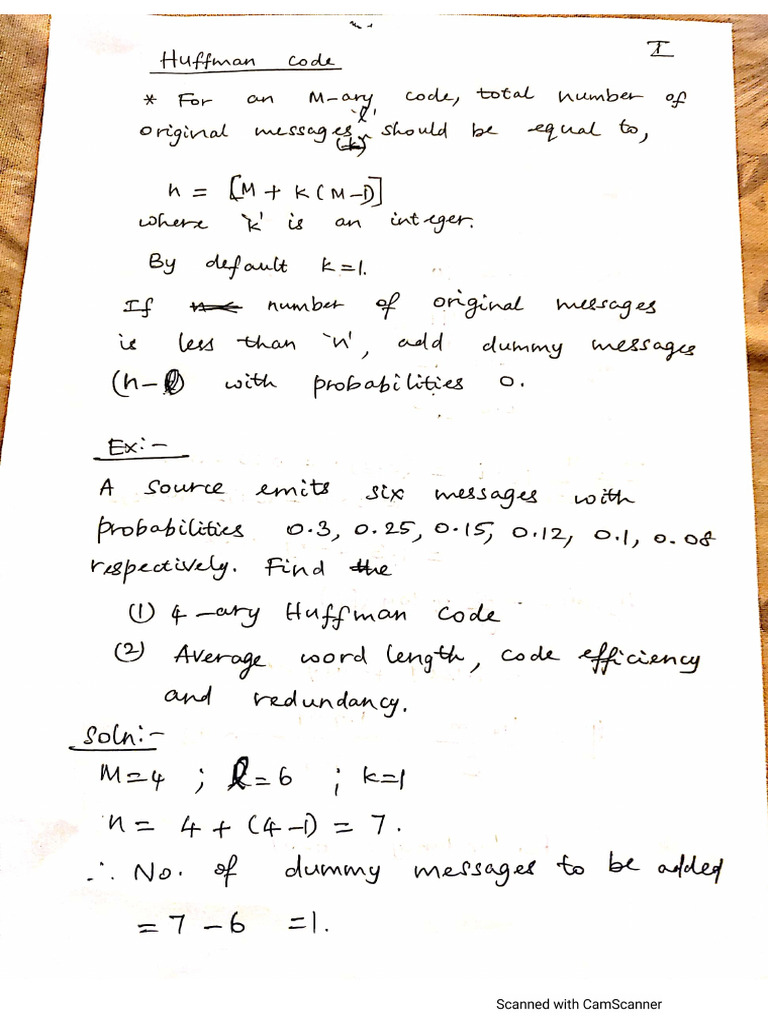 I
Huffman code
* For an M-ary code, total number of
'l'
original messages should be equal to,
n = [M + k(M-1)]
where 'k' is an integer.
By default k=1.
If number of original messages
is less than 'n', add dummy messages
(n-l) with probabilities 0.
Ex:-
A source emits six messages with
probabilities 0.3, 0.25, 0.15, 0.12, 0.1, 0.08
respectively. Find the
(1) 4-ary Huffman code
(2) Average word length, code efficiency
and redundancy.
Soln:-
M=4 ; l=6 ; k=1
n = 4 + (4-1) = 7.
∴ No. of dummy messages to be added
= 7 - 6 = 1.
Scanned with CamScanner